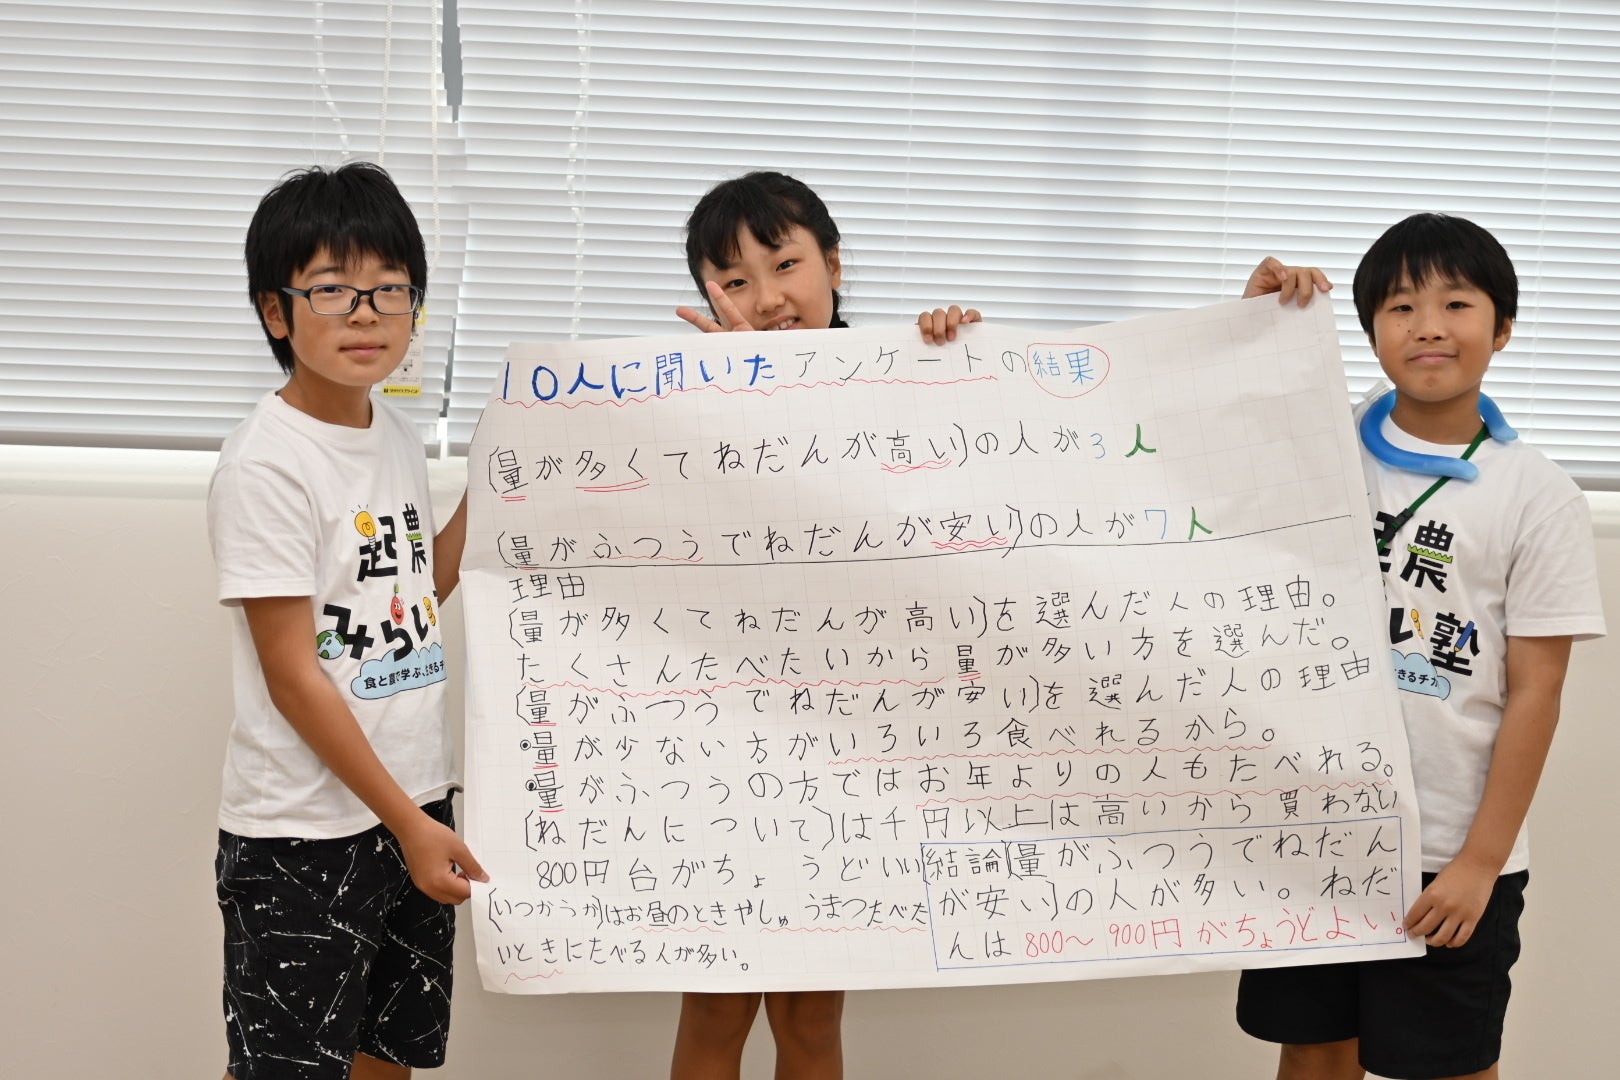 10人に聞いたアンケートの結果
(量が多くてねだんが高い)の人が3人
(量がふつうでねだんが安い)の人が7人
理由
(量が多くてねだんが高い)を選んだ人の理由。
たくさんたべたいから量が多い方を選んだ。
(量がふつうでねだんが安い)を選んだ人の理由
・量が少ない方がいろいろ食べれるから。
・量がふつうの方ではお年よりの人もたべれる。
(ねだんについて)は千円以上は高いから買わない
800円台がちょうどいい
(いつかうか)はお昼のときやしゅうまつたべた
いときにたべる人が多い。
(結論)量がふつうでねだん
が安い)の人が多い。ねだ
んは800〜900円がちょうどよい!
起農
みらい
食と農で学ぶ、生きるチカ
農
い塾
きるチカ